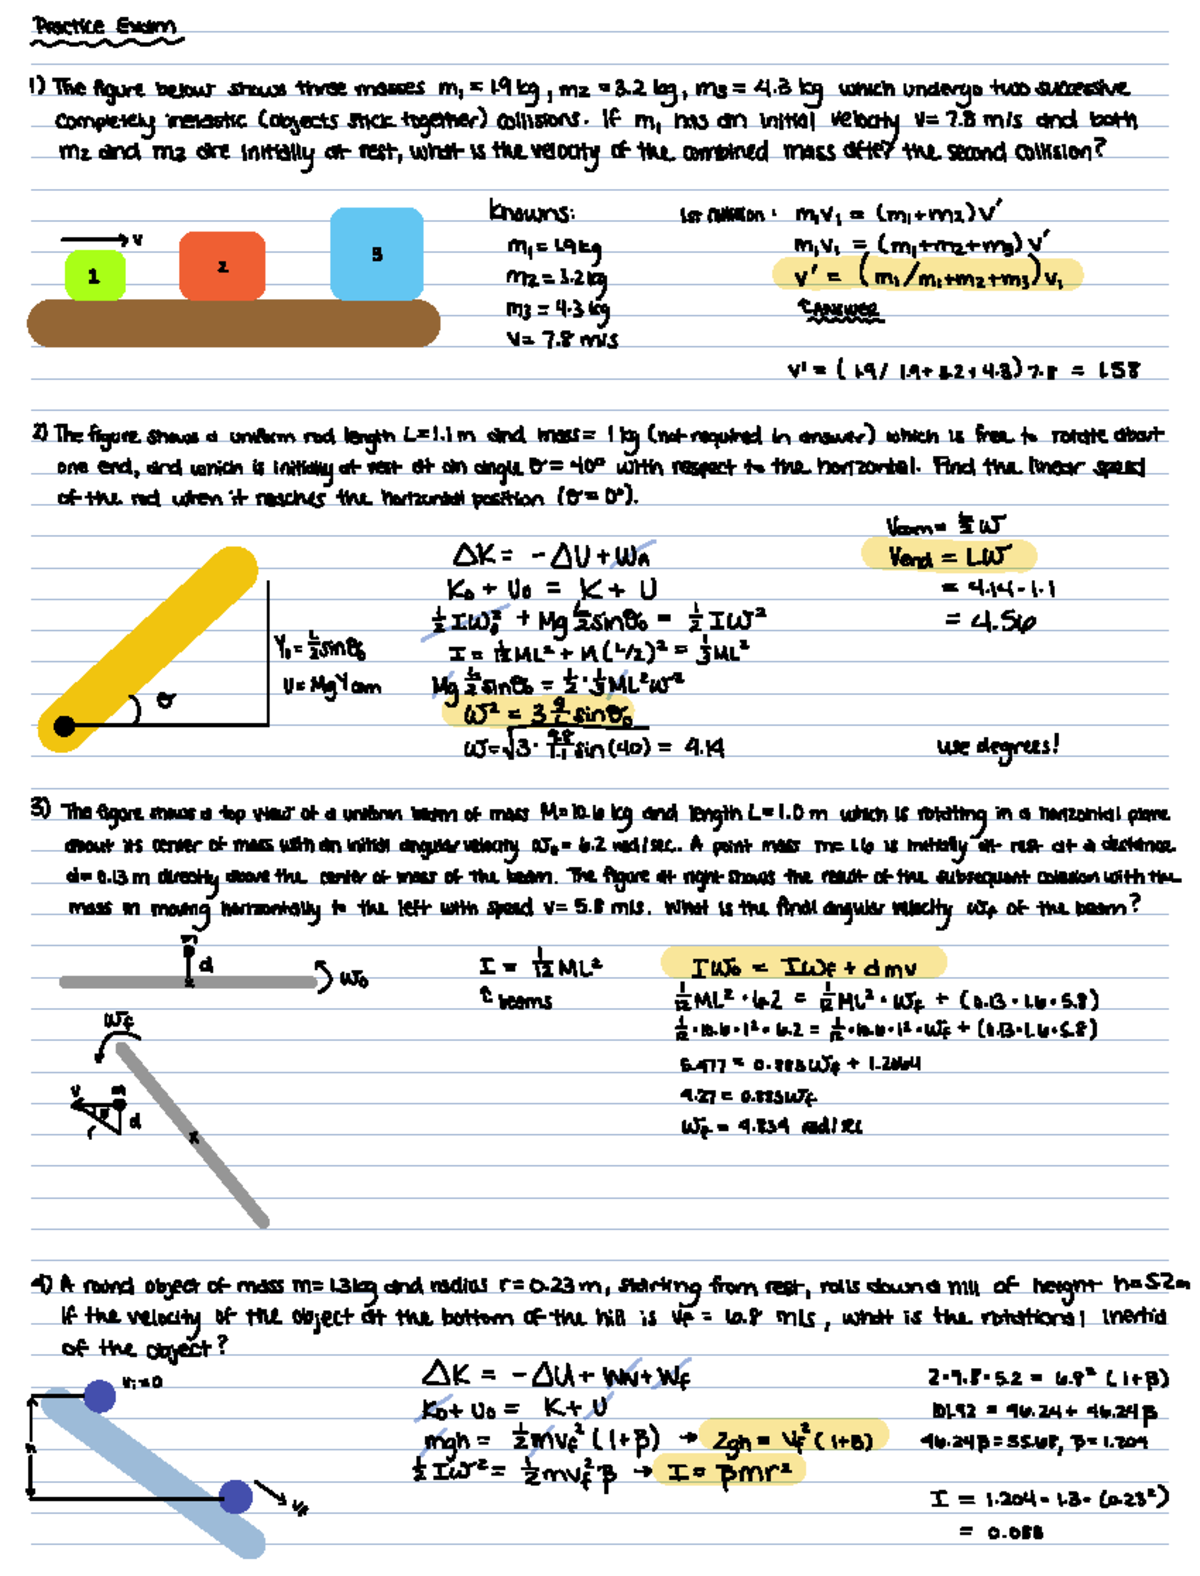 Practice Exam
1) The figure below shows three masses m₁ = 1.9 kg, m₂ = 3.2 kg, m₃ = 4.3 kg which undergo two successive
completely inelastic (objects stick together) collisions. If m₁ has an initial velocity v = 7.8 m/s and both
m₂ and m₃ are initially at rest, what is the velocity of the combined mass after the second collision?
v
1
2
3
knowns:
m₁ = 1.9 kg
m₂ = 3.2 kg
m₃ = 4.3 kg
v = 7.8 m/s
1st collision: m₁v₁ = (m₁+m₂)v'
m₁v₁ = (m₁+m₂+m₃)v'
v' = (m₁/m₁+m₂+m₃)v₁
↑ ANSWER
v' = (1.9/1.9+3.2+4.3)7.8 = 1.58
2) The figure shows a uniform rod length L=1.1 m and mass= 1 kg (not required in answer) which is free to rotate about
one end, and which is initially at rest at an angle θ = 40° with respect to the horizontal. Find the linear speed
of the rod when it reaches the horizontal position (θ = 0°).
θ
Y₀ = L/2 sinθ₀
U = MgYcom
ΔK = -ΔU + WA
K₀ + U₀ = K + U
½Iω₀² + Mg L/2 sinθ₀ = ½Iω²
I = 1/12 ML² + M(L/2)² = 1/3 ML²
Mg L/2 sinθ₀ = ½ · 1/3 ML²ω²
ω² = 3 g/L sinθ₀
ω = √3 · 9.8/1.1 sin(40) = 4.14
Vcom = L/2 ω
Vend = Lω
= 4.14 · 1.1
= 4.56
use degrees!
3) The figure shows a top view of a uniform beam of mass M=10.6 kg and length L=1.0 m which is rotating in a horizontal plane
about its center of mass with an initial angular velocity ω₀ = 6.2 rad/sec. A point mass m= 1.6 is initially at rest at a distance
d= 0.13 m directly above the center of mass of the beam. The figure at right shows the result of the subsequent collision with the
mass m moving horizontally to the left with speed v= 5.8 m/s. What is the final angular velocity ωf of the beam?
m
d
ω₀
ωf
v
m
d
r
x
I = 1/12 ML²
↑ beams
Iω₀ = Iωf + dmv
1/12 ML² · 6.2 = 1/12 ML² · ωf + (0.13 · 1.6 · 5.8)
1/12 · 10.6 · 1² · 6.2 = 1/12 · 10.6 · 1² · ωf + (0.13 · 1.6 · 5.8)
5.477 = 0.883ωf + 1.2064
4.27 = 0.883ωf
ωf = 4.834 rad/sec
4) A round object of mass m= 1.3 kg and radius r = 0.23 m, starting from rest, rolls down a hill of height h=5.2m
If the velocity of the object at the bottom of the hill is vf = 6.8 m/s, what is the rotational inertia
of the object?
vi = 0
h
vf
ΔK = -ΔU + WN + Wf
K₀ + U₀ = K + U
mgh = ½mvf²(1+β) → 2gh = vf²(1+β)
½Iω² = ½mvf²β → I = βmr²
2·9.8·5.2 = 6.8²(1+β)
101.92 = 46.24 + 46.24β
46.24β = 55.68, β = 1.204
I = 1.204 · 1.3 · (0.23²)
= 0.083